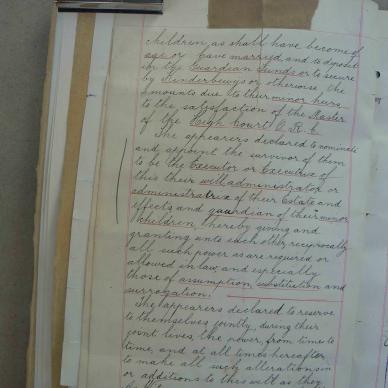 children, as shall have become of
age or have married, and to deposit
in the Guardian's Fund or to secure
by Kinderbewys or otherwise, the
amounts due to their minor heirs
to the satisfaction of the Master
of the High Court O. R. C.
The appearers declared to nominate
and appoint the survivor of them
to be the Executor or Executrix of
this their will administrator or
administratrix of their Estate and
effects and guardian of their minor
children, hereby giving and
granting unto each other, reciprocally
all such power as are required or
allowed in law, and especially
those of assumption, substitution and
surrogation.
The appearers declared to reserve
to themselves jointly, during their
joint lives, the power, from time to
time, and at all times hereafter
to make all such alterations in
or additions to this will as they